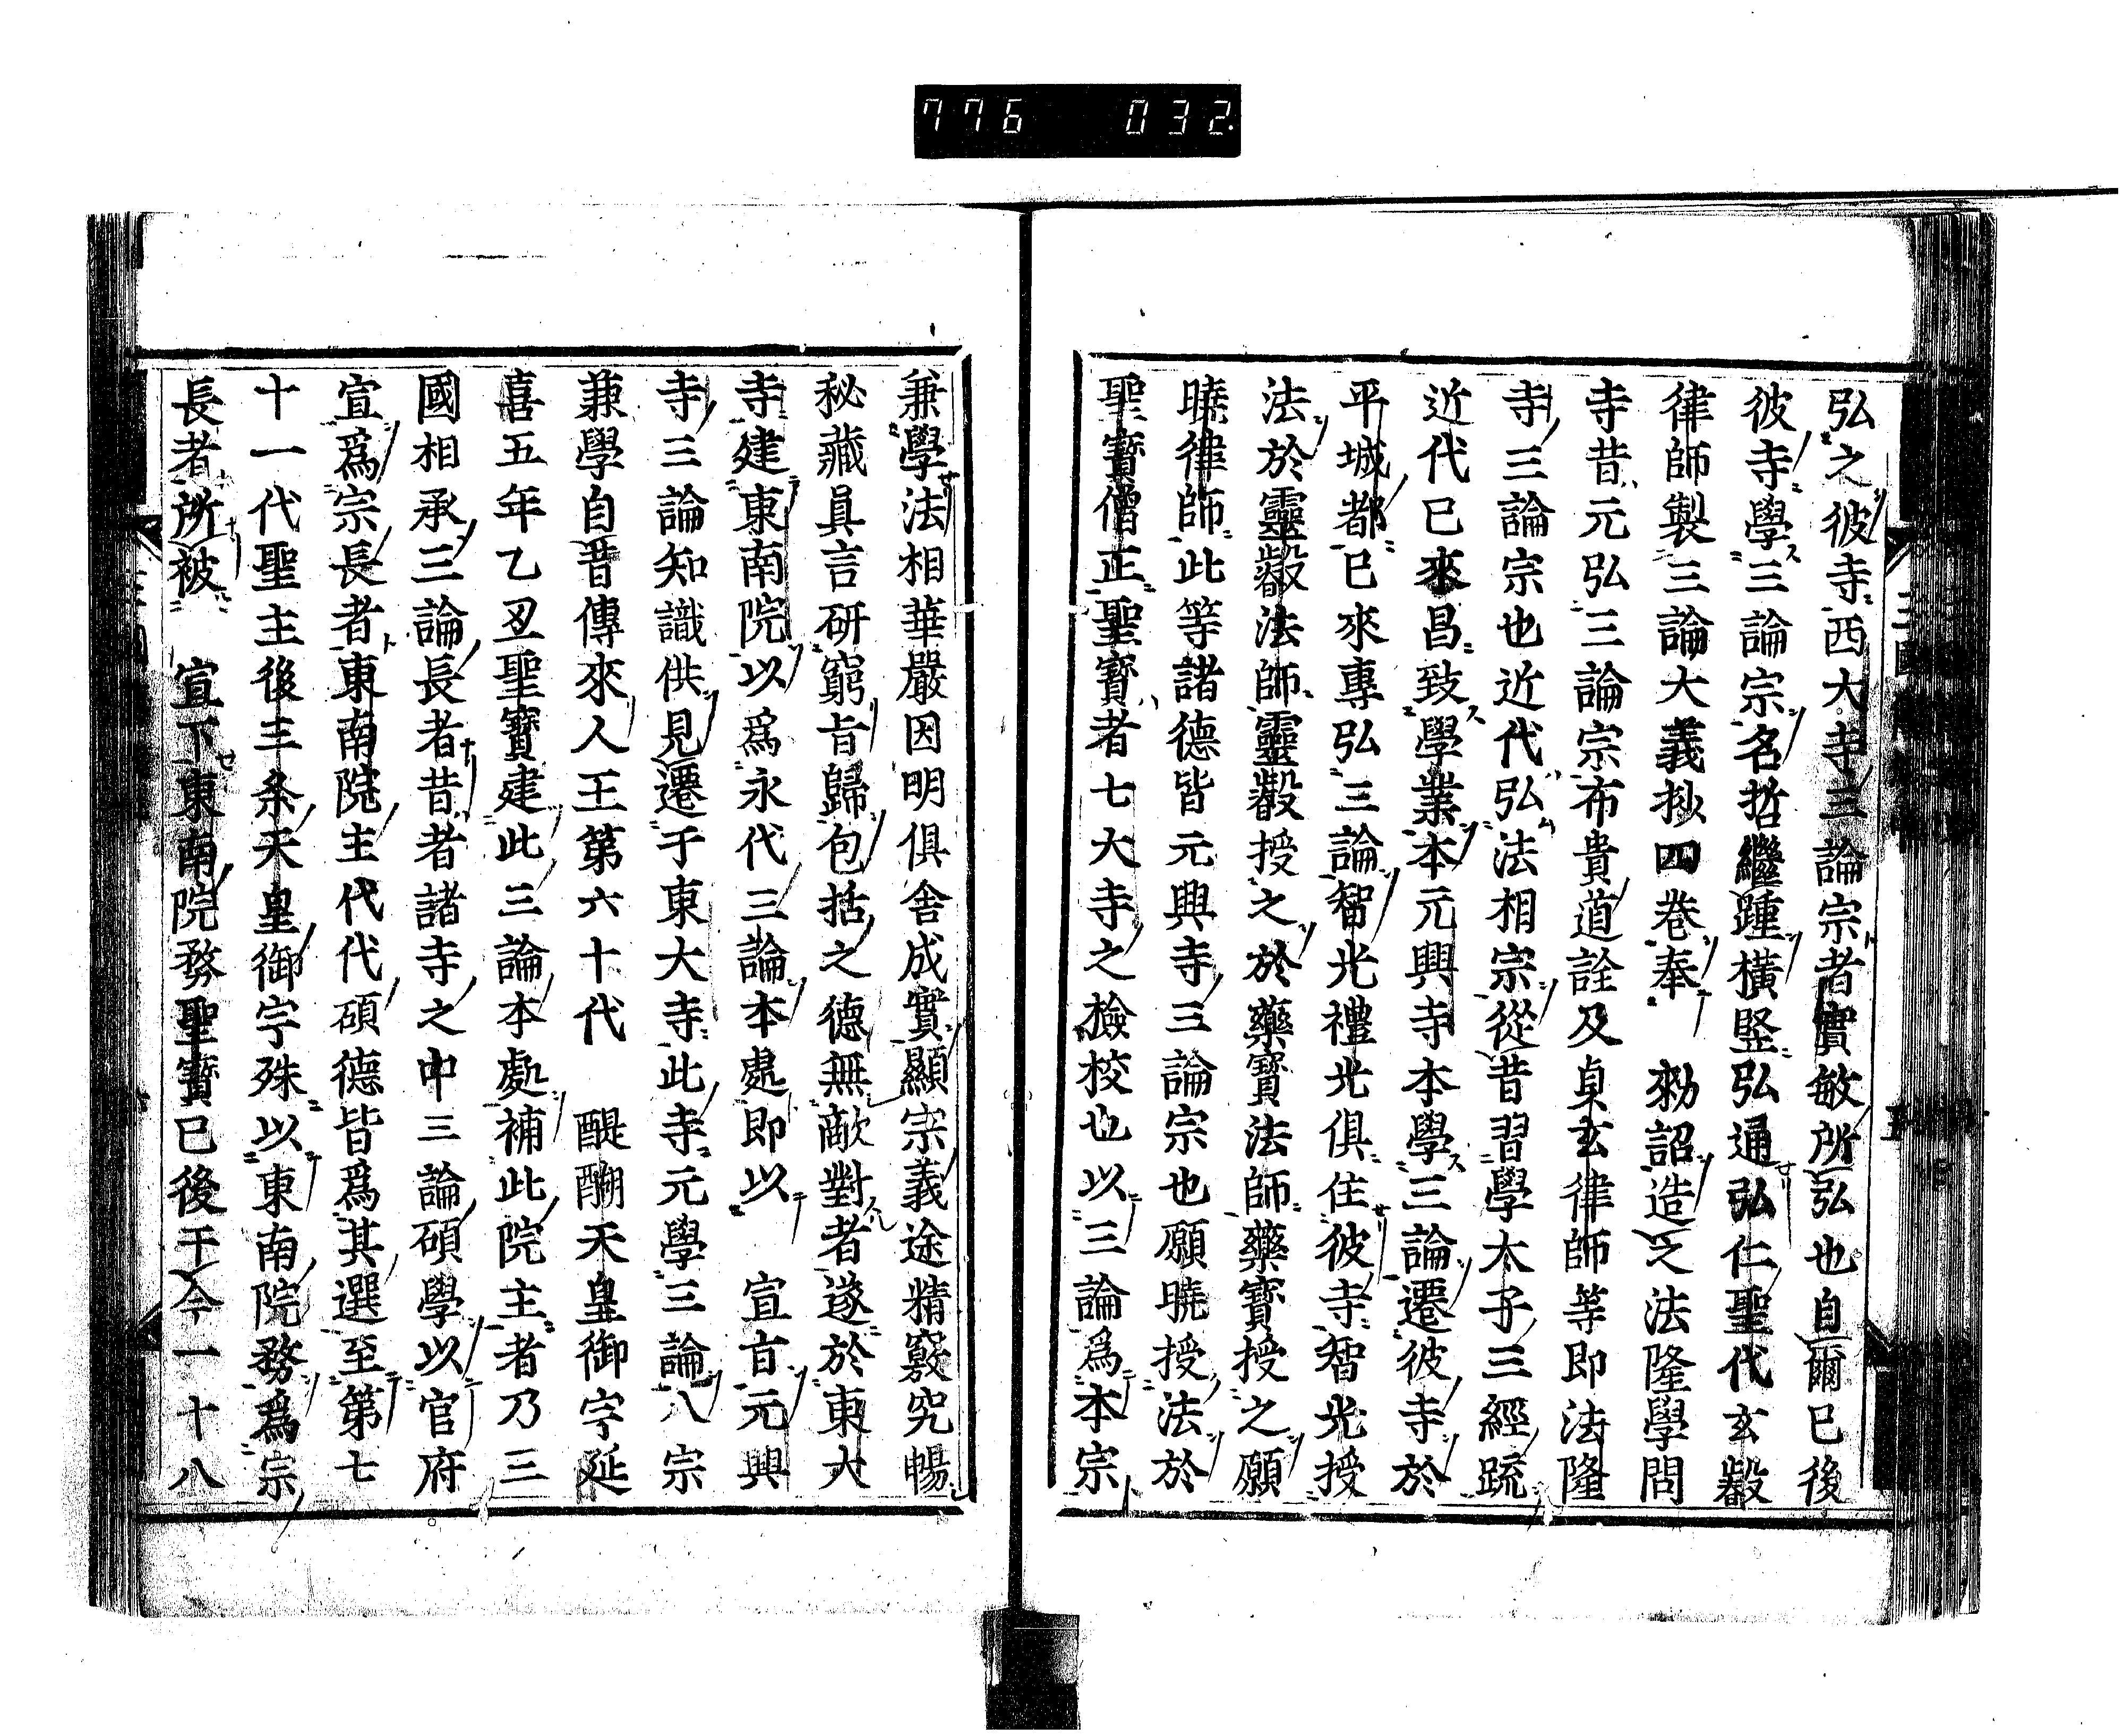 776 032
弘之彼寺西大寺三論宗者實敏所弘也自爾已後
彼寺學三論宗名哲繼踵橫竪弘通弘仁聖代玄叡
律師製三論大義抄四卷奉　勅詔造之法隆學問
寺昔元弘三論宗布貴道詮及貞玄律師等即法隆
寺三論宗也近代弘法相宗從昔習學太子三經疏
近代已來昌致學業本元興寺本學三論遷彼寺於
平城都已來專弘三論智光禮光俱住彼寺智光授
法於靈叡法師靈叡授之於藥寶法師藥寶授之願
曉律師此等諸德皆元興寺三論宗也願曉授法於
聖寶僧正聖寶者七大寺之撿校也以三論爲本宗
兼學法相華嚴因明俱舍成實顯宗義途精竅究暢
秘藏眞言硏窮旨歸包括之德無敵對者遂於東大
寺建東南院以爲永代三論本處即以　宣旨元興
寺三論知識供見遷于東大寺此寺元學三論八宗
兼學自昔傳來人王第六十代　醍醐天皇御宇延
喜五年乙丑聖寶建此三論本處補此院主者乃三
國相承三論長者昔者諸寺之中三論碩學以官府
宣爲宗長者東南院主代代碩德皆爲其選至第七
十一代聖主後三条天皇御宇殊以東南院務爲宗
長者所被　宣下東南院務聖寶已後于今一十八